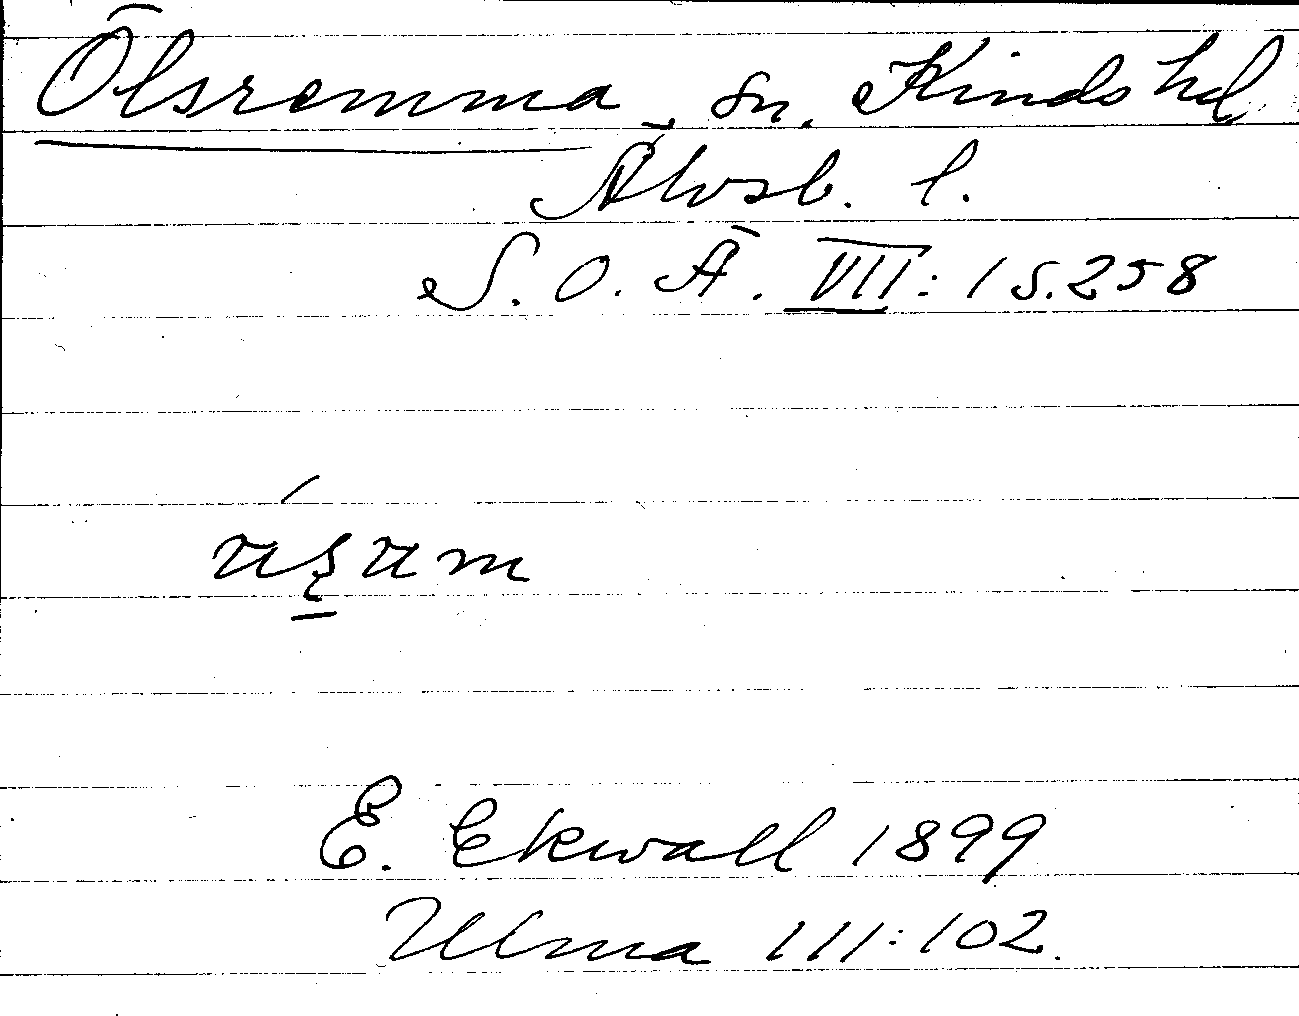 Ölsremma, sn. Kinds hd
Älvsb. l.
S. O. Ä. VII: 1 s. 258
E. Ekwall 1899
Ulma 111:102.